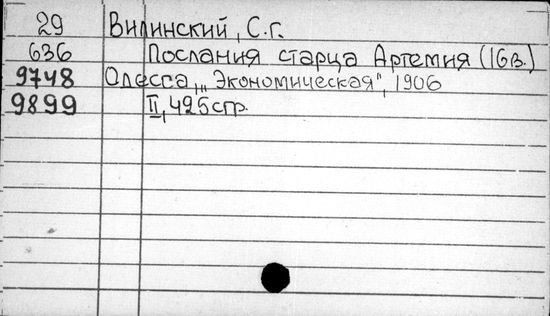 29 Вилинский, С.Г.
636 Послания старца Артемия (16в.)
9748 Одесса, „Экономическая", 1906
9899 II, 425стр.